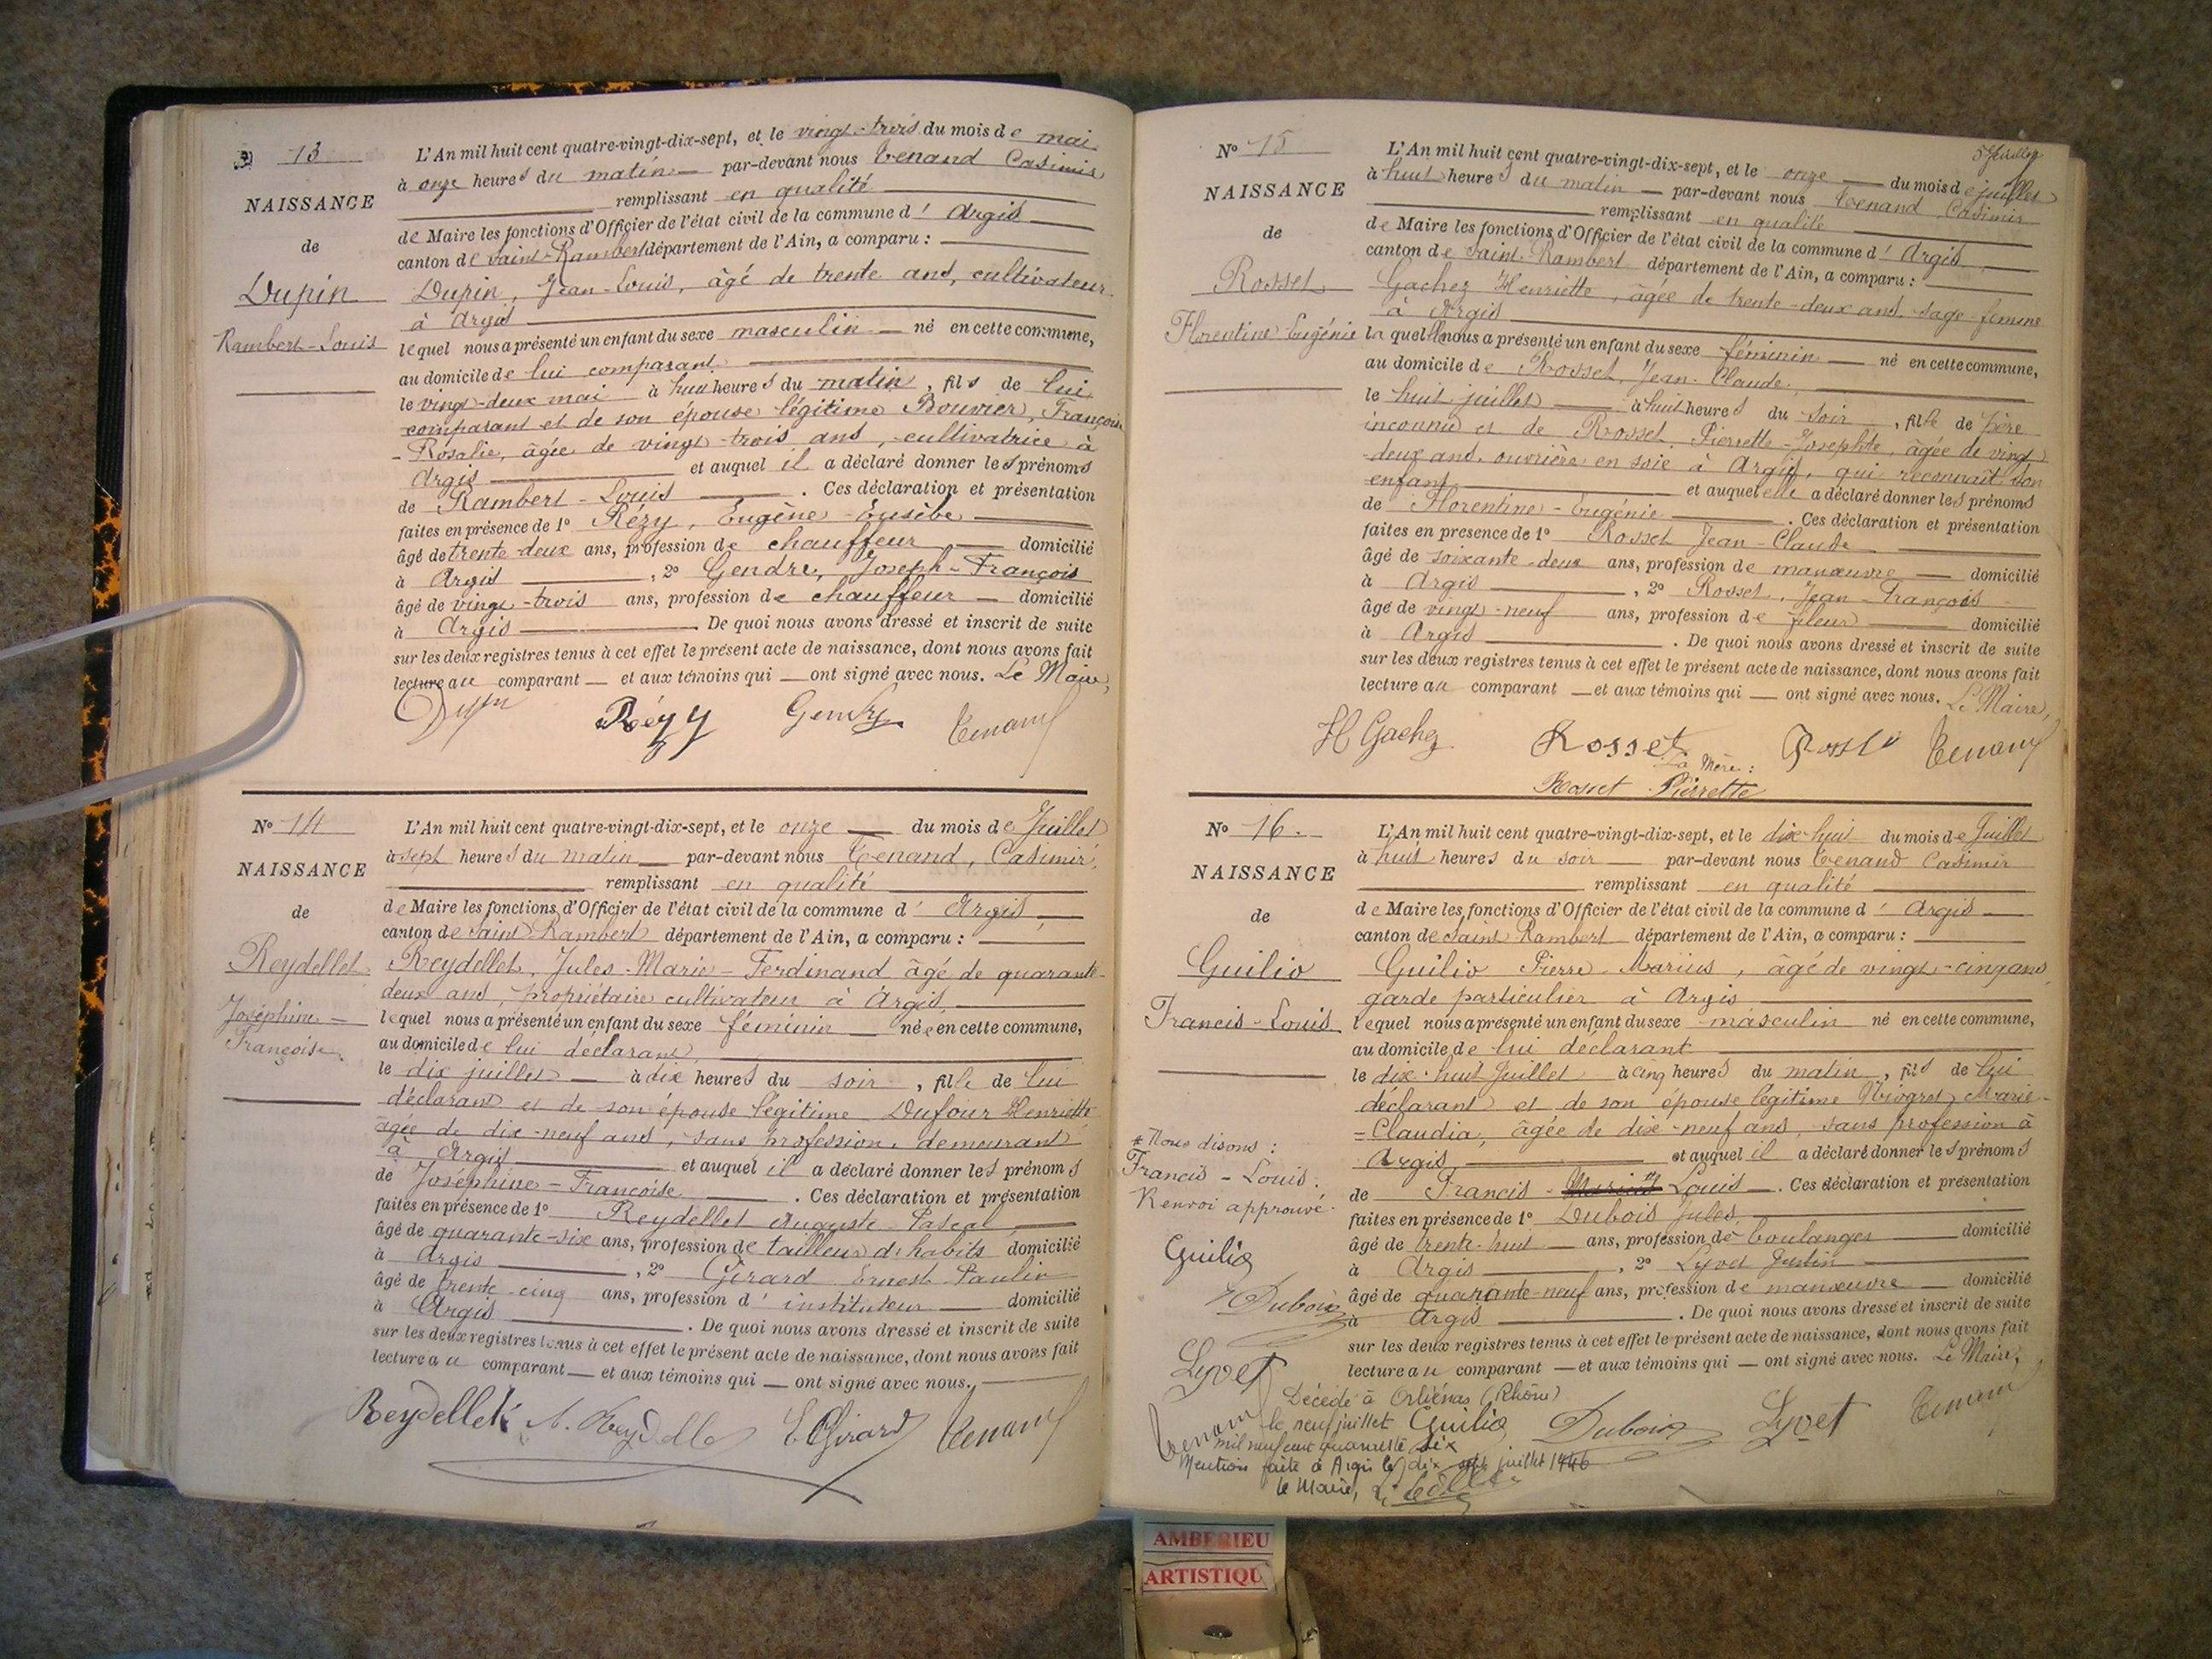 13
NAISSANCE
de
Dupin
Rambert-Louis
L'An mil huit cent quatre-vingt-dix-sept, et le vingt-trois du mois de mai
à onze heures du matin — par-devant nous Tenand Casimir
remplissant en qualité
de Maire les fonctions d'Officier de l'état civil de la commune d'Argis
canton de Saint-Rambert département de l'Ain, a comparu :
Dupin, Jean-Louis, âgé de trente ans, cultivateur
à Argis
lequel nous a présenté un enfant du sexe masculin — né en cette commune,
au domicile de lui comparant
le vingt-deux mai à huit heures du matin, fils de lui
comparant et de son épouse légitime Bouvier, Françoise
-Rosalie, âgée de vingt-trois ans, cultivatrice à
Argis et auquel il a déclaré donner les prénoms
de Rambert-Louis. Ces déclaration et présentation
faites en présence de 1° Rézy, Eugène-Eusèbe
âgé de trente-deux ans, profession de chauffeur — domicilié
à Argis, 2° Gendre, Joseph-François
âgé de vingt-trois ans, profession de chauffeur — domicilié
à Argis. De quoi nous avons dressé et inscrit de suite
sur les deux registres tenus à cet effet le présent acte de naissance, dont nous avons fait
lecture au comparant — et aux témoins qui — ont signé avec nous. Le Maire,
Rézy Tenand
N° 14
NAISSANCE
de
Reydellet
Joséphine-
Françoise
L'An mil huit cent quatre-vingt-dix-sept, et le onze — du mois de Juillet
à sept heures du matin — par-devant nous Tenand, Casimir,
remplissant en qualité
de Maire les fonctions d'Officier de l'état civil de la commune d'Argis
canton de Saint Rambert département de l'Ain, a comparu :
Reydellet, Jules-Marie-Ferdinand âgé de quarante-
deux ans, propriétaire cultivateur à Argis,
lequel nous a présenté un enfant du sexe féminin — née en cette commune,
au domicile de lui déclarant,
le dix juillet — à dix heures du soir, fille de lui
déclarant et de son épouse légitime Dufour Henriette
âgée de dix-neuf ans, sans profession, demeurant
à Argis et auquel il a déclaré donner les prénoms
de Joséphine-Françoise. Ces déclaration et présentation
faites en présence de 1° Reydellet Auguste-Pascal
âgé de quarante-six ans, profession de tailleur d'habits domicilié
à Argis, 2° Girard Ernest Paulin
âgé de trente-cinq ans, profession d'instituteur — domicilié
à Argis. De quoi nous avons dressé et inscrit de suite
sur les deux registres tenus à cet effet le présent acte de naissance, dont nous avons fait
lecture au comparant — et aux témoins qui — ont signé avec nous.
Reydellet A. Reydellet E. Girard Tenand
N° 15
NAISSANCE
de
Rosset
Florentine-Eugénie
L'An mil huit cent quatre-vingt-dix-sept, et le onze — du mois de juillet
à huit heures du matin — par-devant nous Tenand Casimir
remplissant en qualité
de Maire les fonctions d'Officier de l'état civil de la commune d'Argis
canton de Saint-Rambert département de l'Ain, a comparu :
Gachez Henriette, âgée de trente-deux ans, sage-femme
à Argis
laquelle nous a présenté un enfant du sexe féminin — né en cette commune,
au domicile de Rosset, Jean-Claude,
le huit juillet à huit heures du soir, fille de père
inconnu et de Rosset, Pierrette-Josephte, âgée de vingt-
deux ans, ouvrière en soie à Argis, qui reconnaît son
enfant et auquel elle a déclaré donner les prénoms
de Florentine-Eugénie. Ces déclaration et présentation
faites en présence de 1° Rosset Jean-Claude
âgé de soixante-deux ans, profession de manœuvre — domicilié
à Argis, 2° Rosset, Jean-François
âgé de vingt-neuf ans, profession de fileur domicilié
à Argis. De quoi nous avons dressé et inscrit de suite
sur les deux registres tenus à cet effet le présent acte de naissance, dont nous avons fait
lecture au comparant — et aux témoins qui — ont signé avec nous. Le Maire,
H Gachez Rosset Rosset Tenand
La Mère :
Rosset Pierrette
N° 16
NAISSANCE
de
Guilio
Francis-Louis
L'An mil huit cent quatre-vingt-dix-sept, et le dix-huit du mois de Juillet
à huit heures du soir — par-devant nous Tenand Casimir
remplissant en qualité
de Maire les fonctions d'Officier de l'état civil de la commune d'Argis
canton de Saint Rambert département de l'Ain, a comparu :
Guilio Pierre-Marius, âgé de vingt-cinq ans,
garde particulier à Argis
lequel nous a présenté un enfant du sexe masculin né en cette commune,
au domicile de lui déclarant
le dix-huit Juillet à cinq heures du matin, fils de lui
déclarant et de son épouse légitime Niogret, Marie-
-Claudia, âgée de dix-neuf ans, sans profession à
Argis, et auquel il a déclaré donner les prénoms
de Francis-Marius Louis. Ces déclaration et présentation
faites en présence de 1° Dubois Jules,
âgé de trente-huit — ans, profession de boulanger domicilié
à Argis, 2° Lyvet Justin
âgé de quarante-neuf ans, profession de manœuvre — domicilié
à Argis. De quoi nous avons dressé et inscrit de suite
sur les deux registres tenus à cet effet le présent acte de naissance, dont nous avons fait
lecture au comparant — et aux témoins qui — ont signé avec nous. Le Maire,
* Nous disons :
Francis-Louis.
Renvoi approuvé.
Guilio
J Dubois
Lyvet
Tenand
Guilio Dubois Lyvet Tenand
Décédé à Orliénas (Rhône)
le neuf juillet
mil neuf cent quarante six
Mention faite à Argis le dix juillet 1946
le Maire,
AMBERIEU
ARTISTIQU